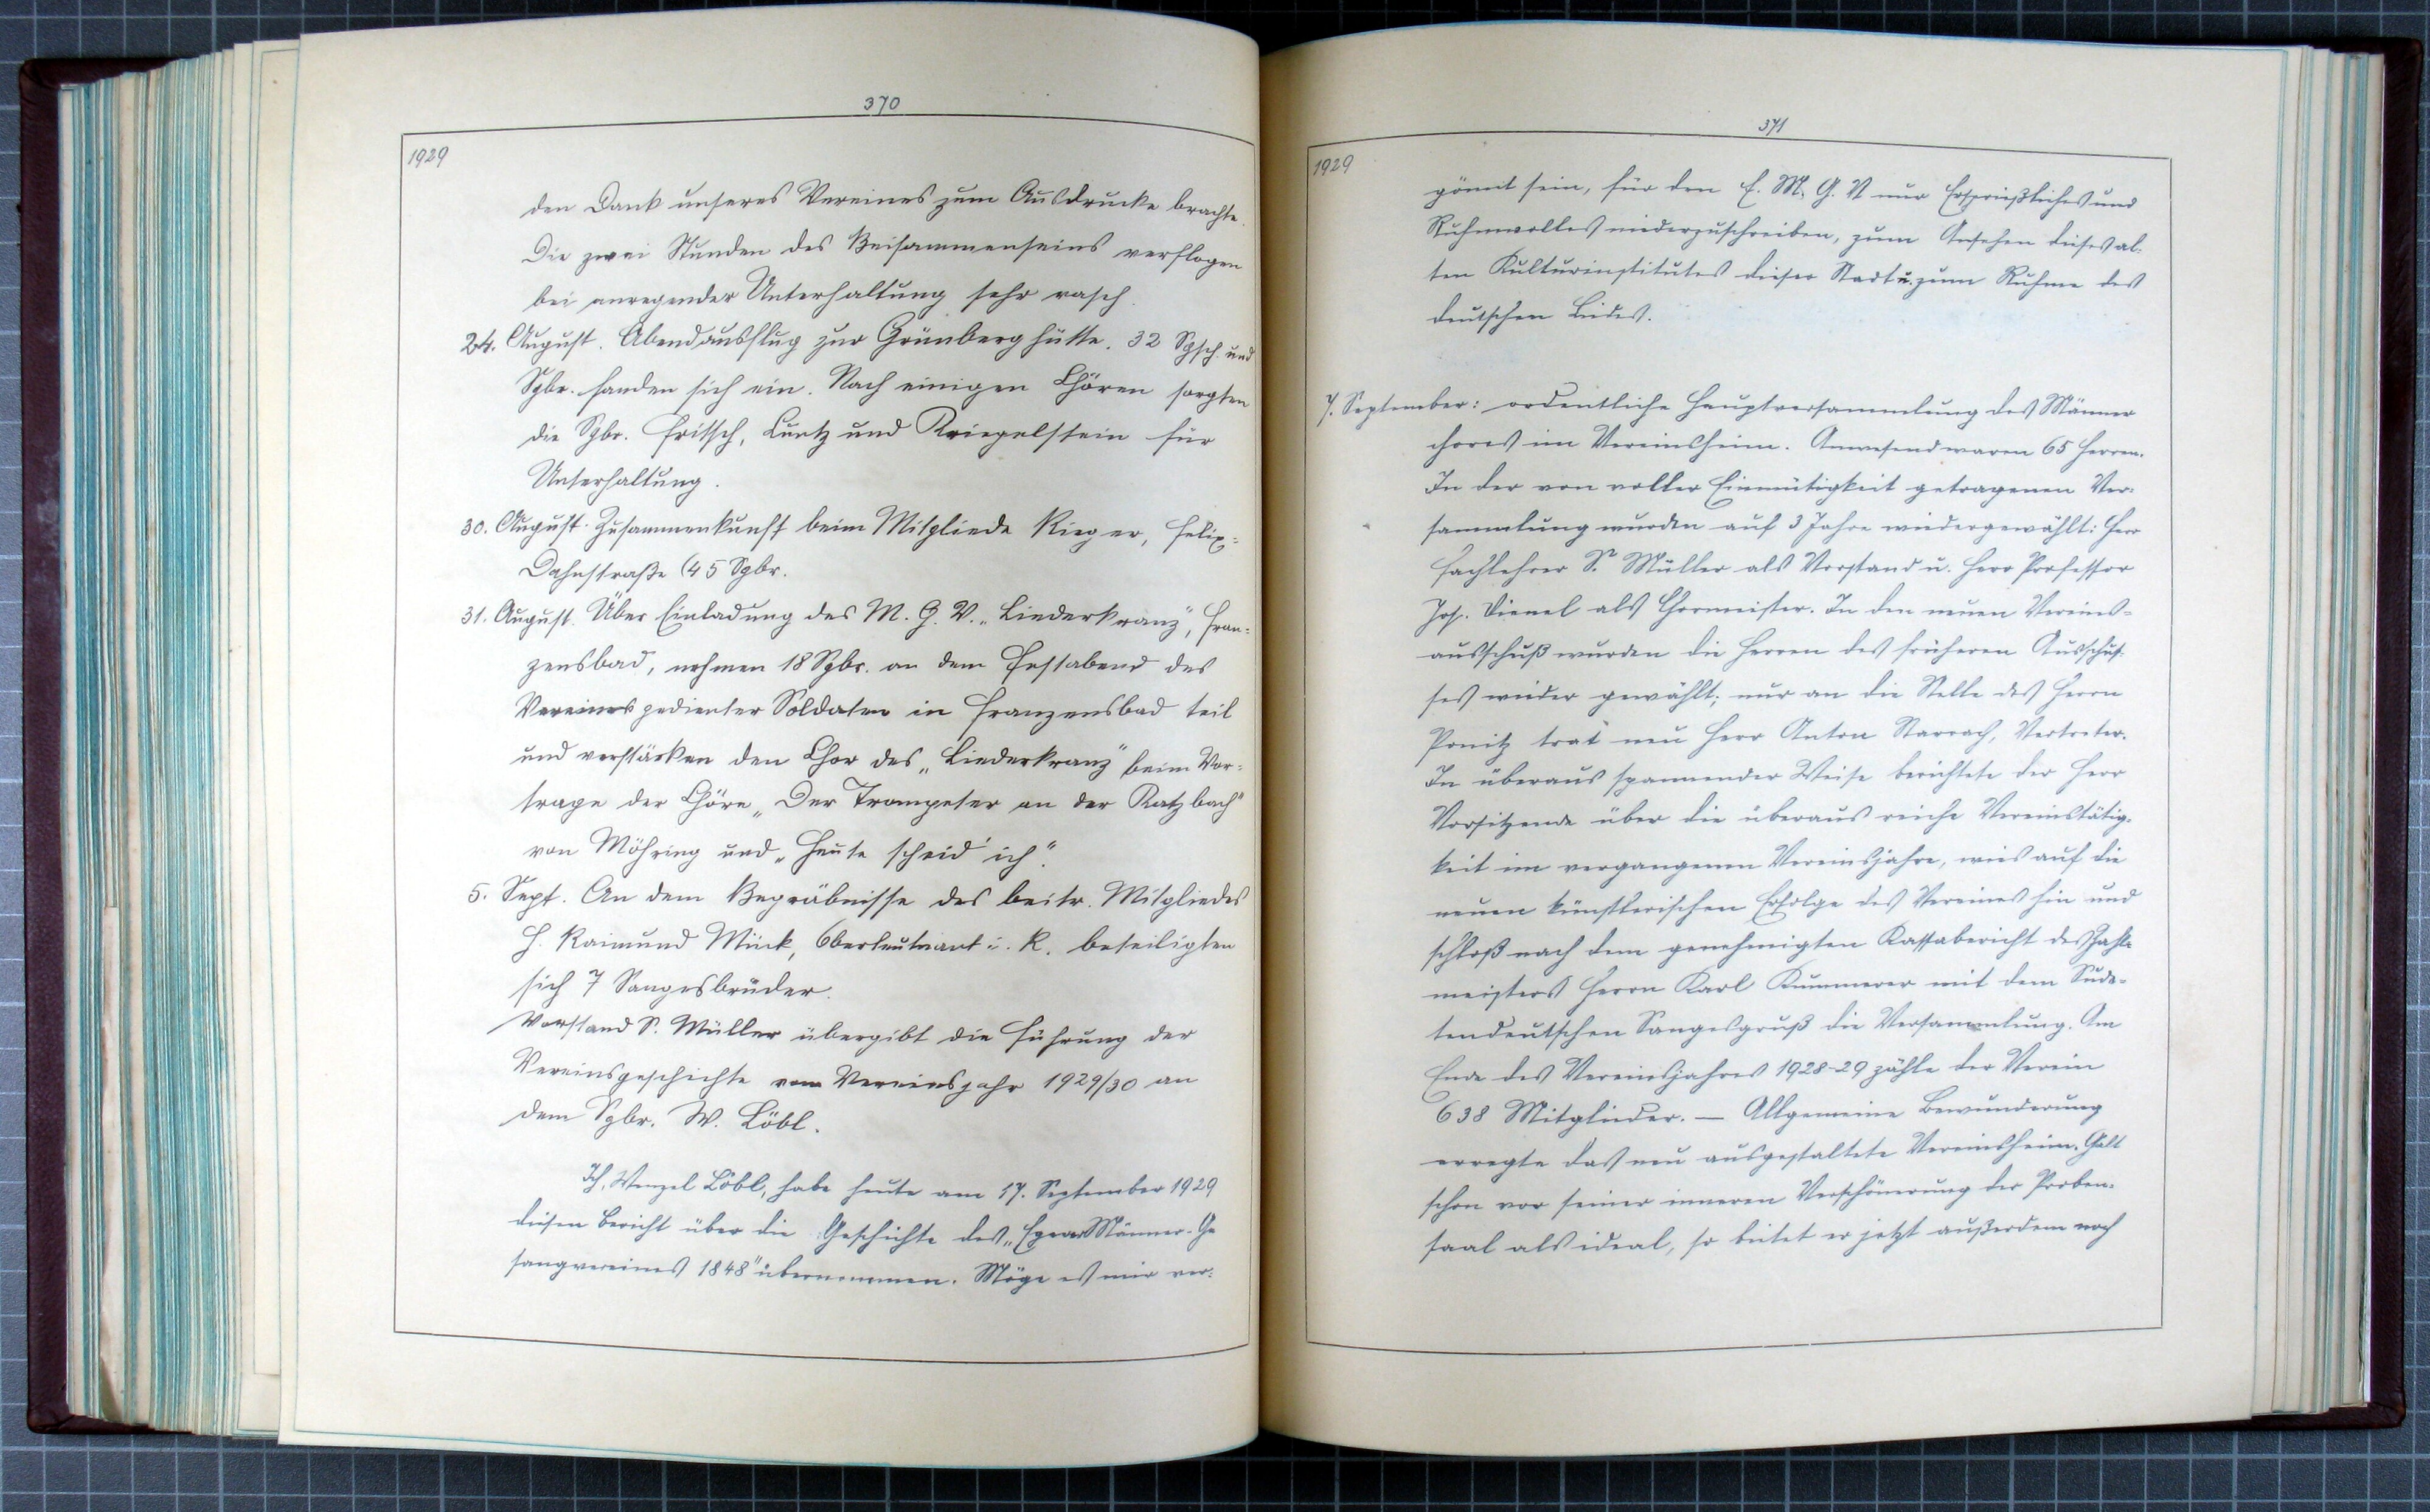 370
1929
den Dank unseres Vereines zum Ausdrucke brachte.
Die zwei Stunden des Beisammenseins verflogen
bei anregender Unterhaltung sehr rasch.
24. August. Abendausflug zur Grünberghütte. 32 Sgsch. und
Sgbr. fanden sich ein. Nach einigen Chören sorgten
die Sgbr. Fritsch, Luntz und Kriegelstein für
Unterhaltung.
30. August. Zusammenkunft beim Mitgliede Rieger, Felix-
Dahnstraße (45 Sgbr.
31. August. Über Einladung des M. G. V. „Liederkranz", Fran-
zensbad, nehmen 18 Sgbr. an dem Festabend des
Vereines gedienter Soldaten in Franzensbad teil
und verstärken den Chor des „Liederkranz" beim Vor-
trage der Chöre „Der Trompeter an der Katzbach"
von Möhring und „Heute scheid' ich".
5. Sept. An dem Begräbnisse des beitr. Mitgliedes
H. Raimund Mück, Oberleutnant i. R. beteiligten
sich 7 Sangesbrüder.
Vorstand S. Müller übergibt die Führung der
Vereinsgeschichte vom Vereinsjahr 1929/30 an
dem Sgbr. W. Löbl.
Ich, Wenzel Löbl, habe heute am 17. September 1929
diesen Bericht über die Geschichte des „Egerer Männer-Ge
sangvereines 1848" übernommen. Möge es mir ver-
371
1929
gönnt sein, für den E. M. G. V nur Ersprießliches und
Ruhmvolles niederzuschreiben, zum Ansehen dieses al-
ten Kulturinstitutes dieser Stadt u. zum Ruhme des
deutschen Liedes.
7. September: ordentliche Hauptversammlung des Männer
chores im Vereinsheim. Anwesend waren 65 Herren.
In der von voller Einmütigkeit getragenen Ver-
sammlung wurden auf 3 Jahre wiedergewählt: Herr
Fachlehrer S. Müller als Vorstand u. Herr Professor
Jos. Dienel als Chormeister. In den neuen Vereins-
ausschuß wurden die Herren des früheren Ausschus-
ses wieder gewählt; nur an die Stelle des Herrn
Ponitz trat neu Herr Anton Starrach, Vertreter.
In überaus spannender Weise berichtete der Herr
Vorsitzende über die überaus reiche Vereinstätig-
keit im vergangenen Vereinsjahre, wies auf die
neuen künstlerischen Erfolge des Vereines hin und
schloß nach dem genehmigten Kassabericht des Zahl-
meisters Herrn Karl Kummerer mit dem Sude-
tendeutschen Sangesgruß die Versammlung. Am
Ende des Vereinsjahres 1928-29 zählte der Verein
638 Mitglieder. — Allgemeine Bewunderung
erregte das neu ausgestaltete Vereinsheim. Galt
schon vor seiner inneren Verschönerung der Proben-
saal als ideal, so bietet er jetzt außerdem noch